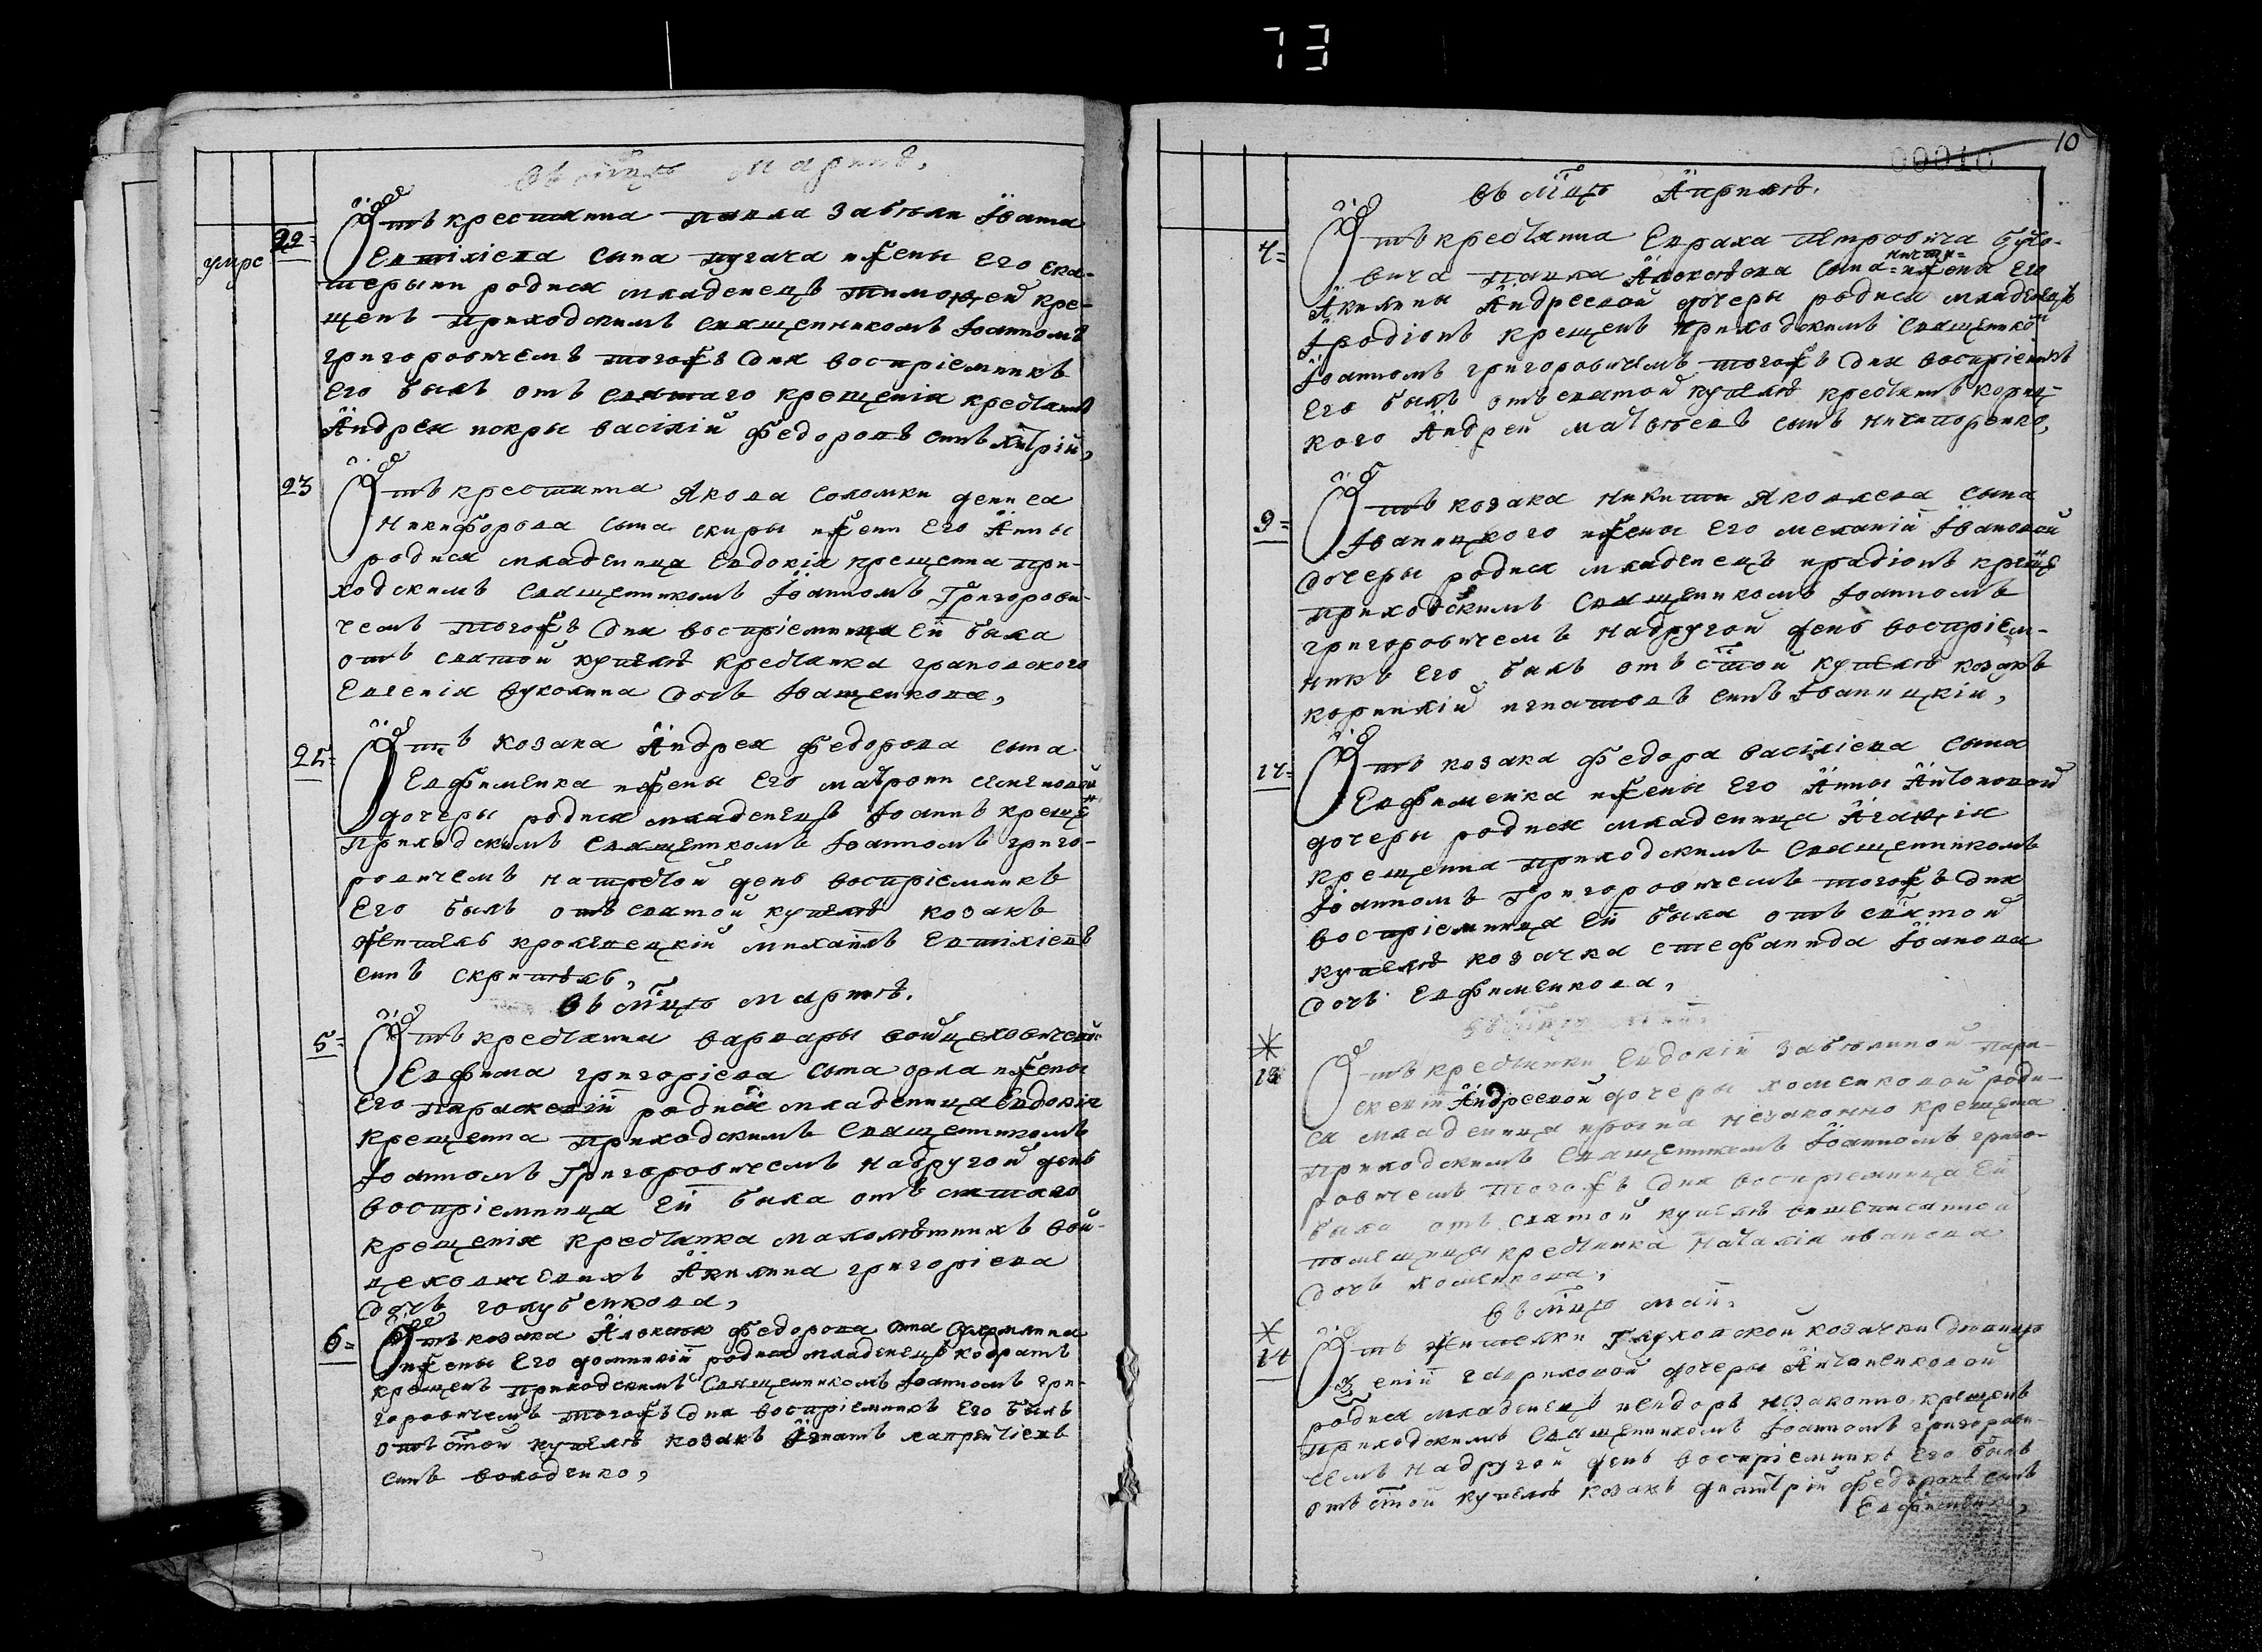 73
10
00010
въ мцѣ Мартѣ,
умре
22=
Отъ крестянина Павла Забѣли Іоана
Евтіхіева сына пугача ижены его ека-
терыни родися младенецъ Тимофей кре-
щенъ приходскимъ священникомъ Іоанномъ
григоровичемъ тогожъ дня воспріемникъ
его былъ отъ святаго крещенія крестянинъ
Андрея искры василій федоровъ синъ
23
Отъ крестянина Якова Соломки дениса
Никифорова сына скиры ижени его Анны
родися младеница Евдокія крещенна при-
ходскимъ священникомъ Іоанномъ Григорови-
чемъ тогожъ дня воспріемница ей была
отъ святой купелѣ крестянка грановского
Евгенія вуколина дочь Іващенкова,
25=
Отъ козака Андрея федорова сына
Евфименка ижены его матрони семеновой
дочеры родися младенецъ Іоаннъ крещен
приходскимъ священникомъ Іоанномъ григо-
ровичемъ натретой день воспріемникъ
его былъ отъ святой купелѣ козакъ
житель кролевецкій михаилъ Евтихіевъ
синъ скрипѣль,
въ мцѣ Мартѣ.
5=
Отъ крестянина варвары войцеховичевой
Евфима григоріева сына орла ижены
его параскевіи родися младеница Евдокія
крещенна приходскимъ священникомъ
Іоанномъ Григоровичемъ надругой день
воспріемница ей была отъ святаго
крещенія крестянка малолѣтнихъ вой-
цеховичевихъ Акилина григоріева
дочь голубенкова,
6=
Отъ козака Алексѣя федорова сина
ижены его домникіи родися младенецъ кодратъ
крещенъ приходскимъ священникомъ Іоанномъ гри-
горовичемъ тогожъ дня воспріемникъ его былъ
отъ стой купелѣ козакъ Ігнатъ лаврентіевъ
синъ володченко,
въ мцѣ Априлѣ,
4=
Отъ крестянина Евраха Петровича буто-
вича павла Алексѣева сына ижени его
Акилины Андреевой дочеры родися младенецъ
Іродіонъ крещенъ приходскимъ священнико
Іоанномъ григоровичемъ тогожъ дня воспріемникъ
его былъ отъ святой купелѣ крестянинъ кориц-
кого Андрей матвѣевъ сынъ ничипоренко,
9=
Отъ козака никити Яковлева сына
Іваницкого ижены его меланіи Івановой
дочеры родися младенецъ иродіонъ креще
приходскимъ священникомъ Іоанномъ
григоровичемъ надругой день воспріем-
никъ его былъ отъ стой купелѣ козакъ
корнилій игнатовъ синъ Іваницкій,
14=
Отъ козака федора василіева сына
Евфименка ижены его Анны Антоновой
дочеры родися младеница Агафія
крещенна приходскимъ священникомъ
Іоанномъ Григоровичемъ тогожъ дня
воспріемница ей была отъ святой
купелѣ козачка стефанида Іванова
дочъ Евфименкова,
13
Отъ крестянки Евдокіи Забѣлиной пара-
скевіи Андреевой дочеры хоменковой роди-
ся младеница ирина незаконно крещена
приходскимъ священникомъ Іоанномъ григо-
ровичемъ тогожъ дня воспріемница ей
была отъ святой купелѣ вишеписанной
помещицы крестянка наталія иванова
дочъ хоменкова,
въ мцѣ маіи,
14
Отъ жителки Глуховской козачки дѣвицы
гавриловой дочеры Антоненковой
родися младенецъ исидоръ незаконно крещенъ
приходскимъ священникомъ Іоанномъ григорови-
чемъ надругой день воспріемникъ его былъ
отъ стой купелѣ козакъ димитрій федоровъ синъ
Евфименко,